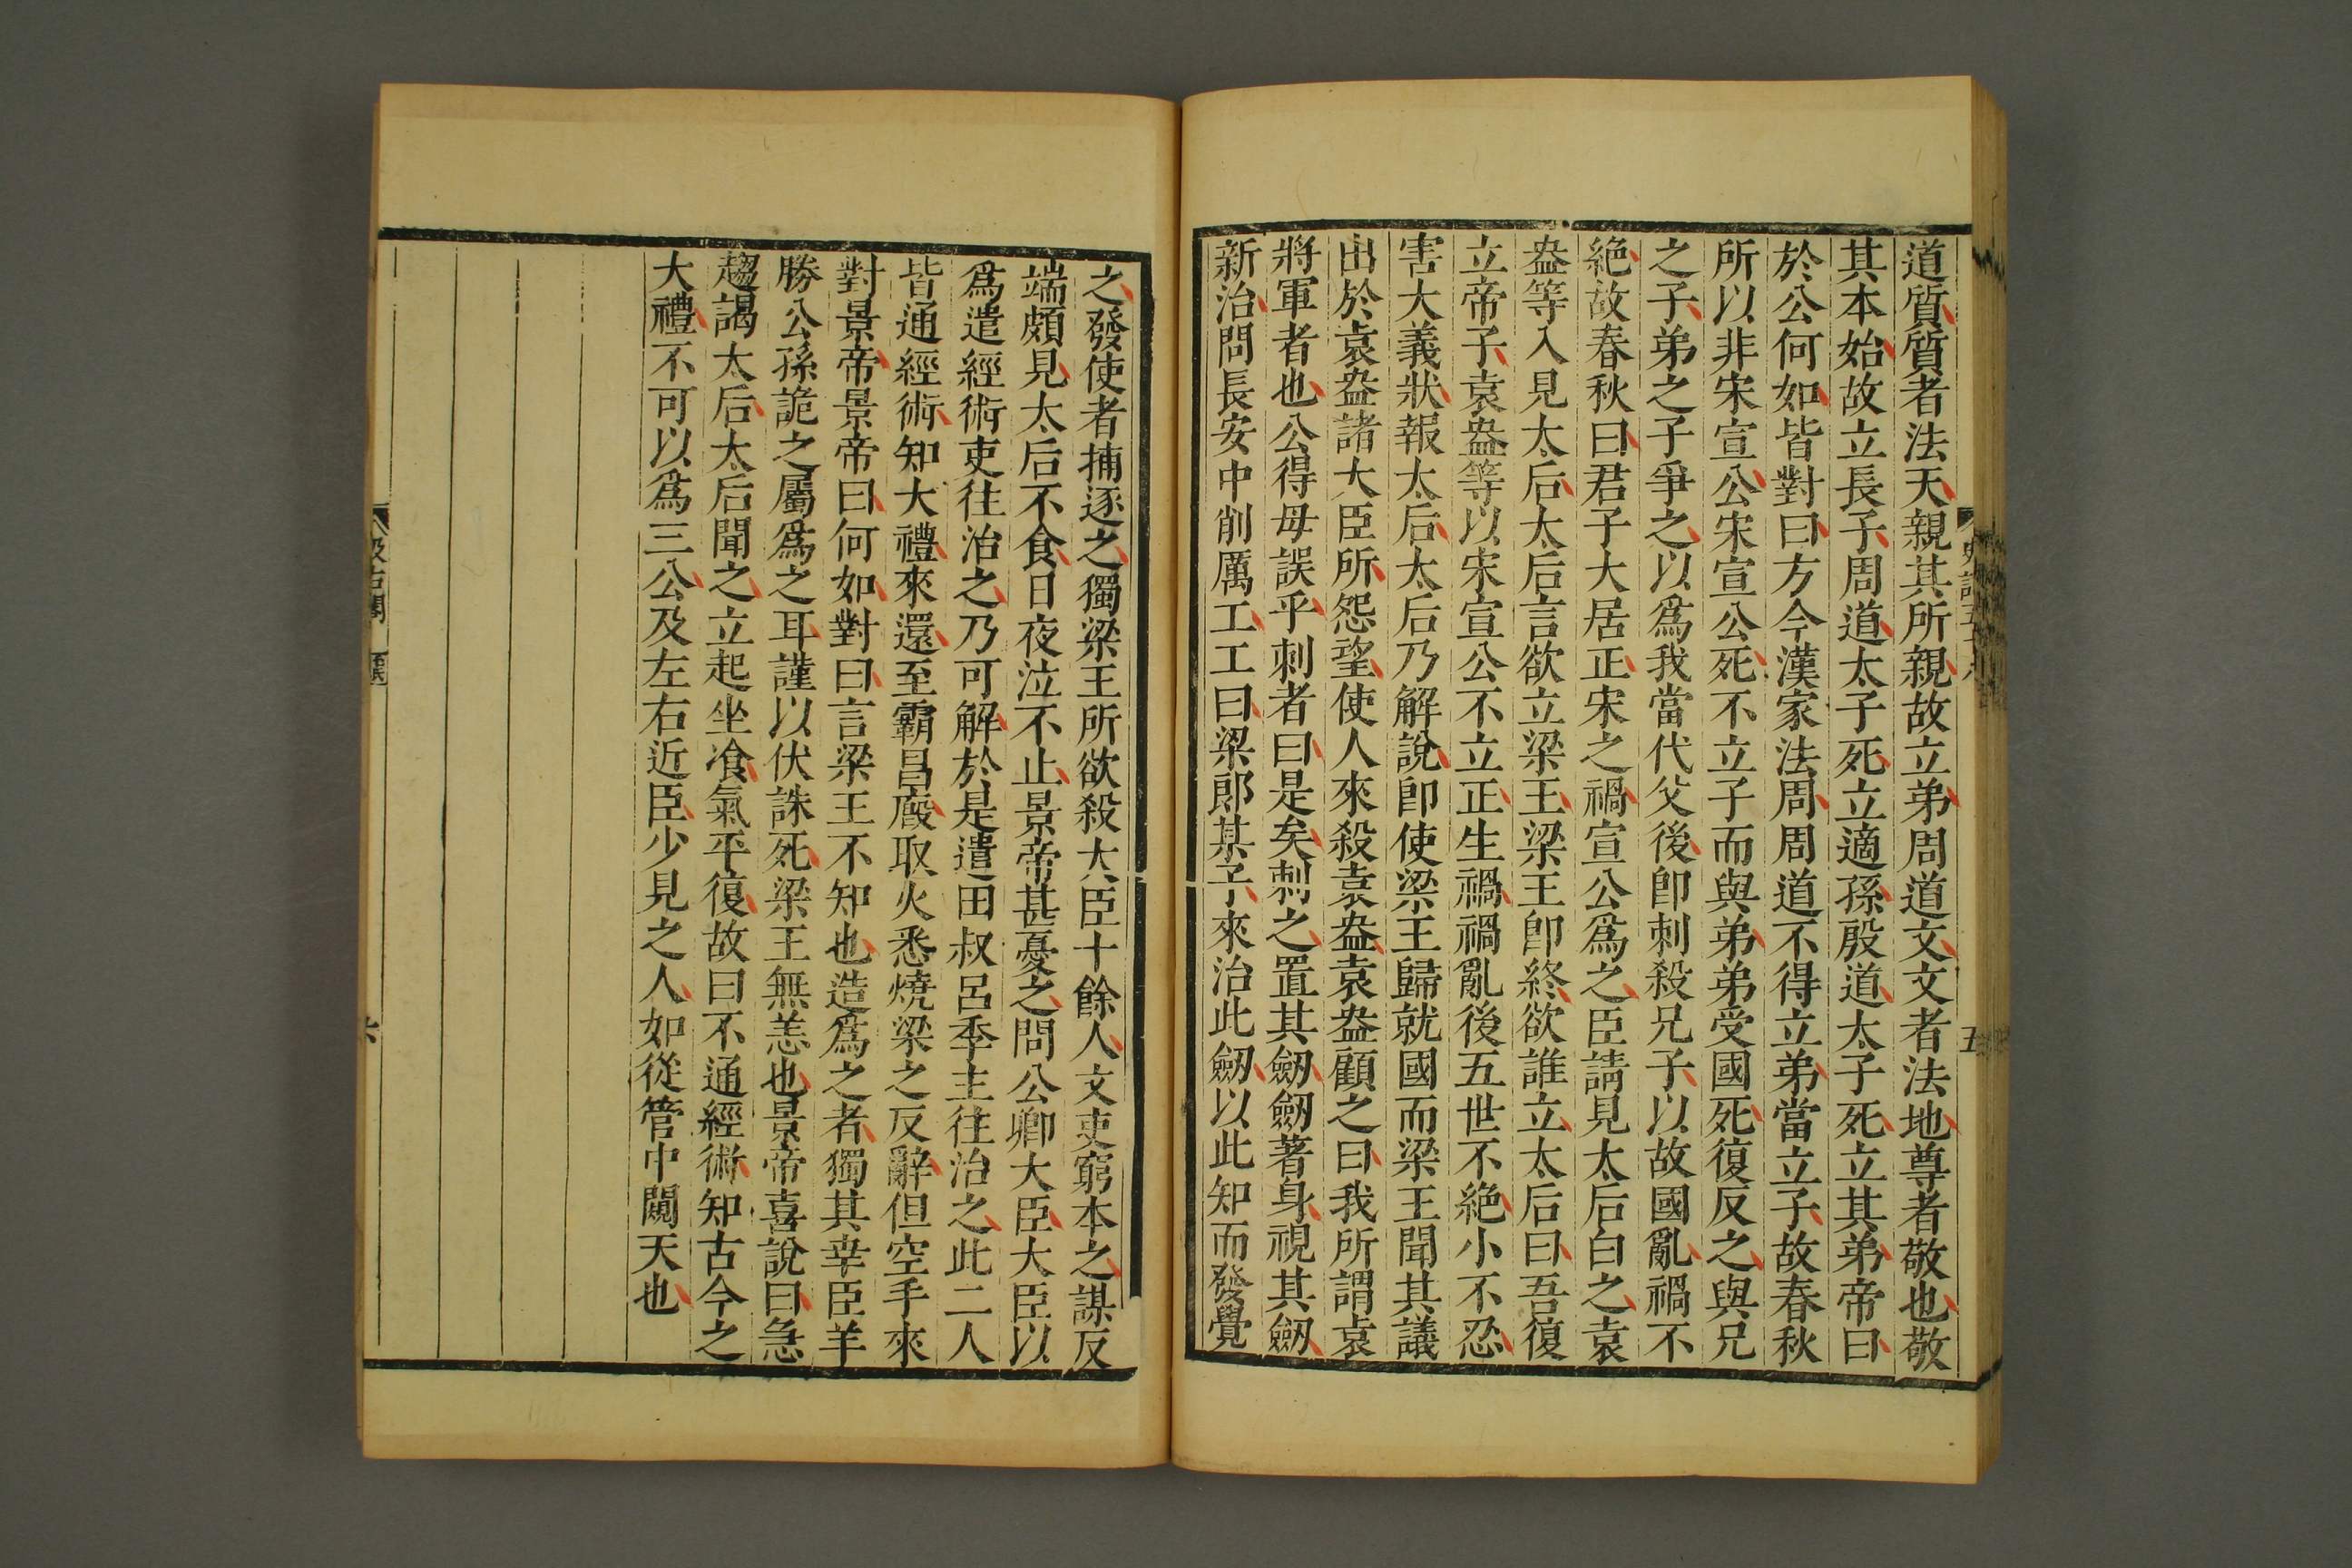 道質質者法天親其所親故立弟周道文文者法地尊者敬也敬
其本始故立長子周道太子死立適孫殷道太子死立其弟帝曰
於公何如皆對曰方今漢家法周周道不得立弟當立子故春秋
所以非宋宣公宋宣公死不立子而與弟弟受國死復反之與兄
之子弟之子爭之以爲我當代父後卽刺殺兄子以故國亂禍不
絶故春秋曰君子大居正宋之禍宣公爲之臣請見太后白之袁
盎等入見太后太后言欲立梁王梁王卽終欲誰立太后曰吾復
立帝子袁盎等以宋宣公不立正生禍禍亂後五世不絶小不忍
害大義狀報太后太后乃解說卽使梁王歸就國而梁王聞其議
出於袁盎諸大臣所怨望使人來殺袁盎袁盎顧之曰我所謂袁
將軍者也公得毋誤乎刺者曰是矣刺之置其劒劒著身視其劒
新治問長安中削厲工工曰梁郎某子來治此劒以此知而發覺
之發使者捕逐之獨梁王所欲殺大臣十餘人文吏窮本之謀反
端頗見太后不食日夜泣不止景帝甚憂之問公卿大臣大臣以
爲遣經術吏往治之乃可解於是遣田叔呂季主往治之此二人
皆通經術知大禮來還至霸昌廏取火悉燒梁之反辭但空手來
對景帝景帝曰何如對曰言梁王不知也造爲之者獨其幸臣羊
勝公孫詭之屬爲之耳謹以伏誅死梁王無恙也景帝喜說曰急
趨謁太后太后聞之立起坐飡氣平復故曰不通經術知古今之
大禮不可以爲三公及左右近臣少見之人如從管中闚天也
史記五十八
五
汲古閣
六